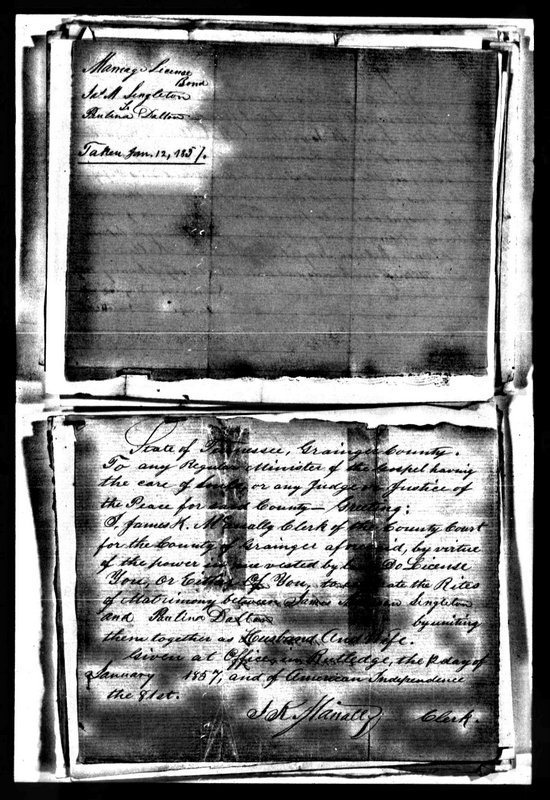 Marriage License
Bond
Jas M Singleton
To
Paulina Dalton
Taken Jan. 12, 1857.
State of Tennessee, Grainger County.
To any Regular Minister of the Gospel having
the care of Souls, or any Judge or Justice of
the Peace for said County — Greeting:
I, James K. McAnally Clerk of the County Court
for the County of Grainger aforesaid, by virtue
of the power in me vested by law Do License
You, Or Either Of You, to celebrate the Rites
of Matrimony between James Singleton
and Paulina Dalton by uniting
them together as Husband And Wife.
Given at Office in Rutledge, the 12 day of
January 1857, and of American Independence
the 81st.
J K McAnally Clerk.